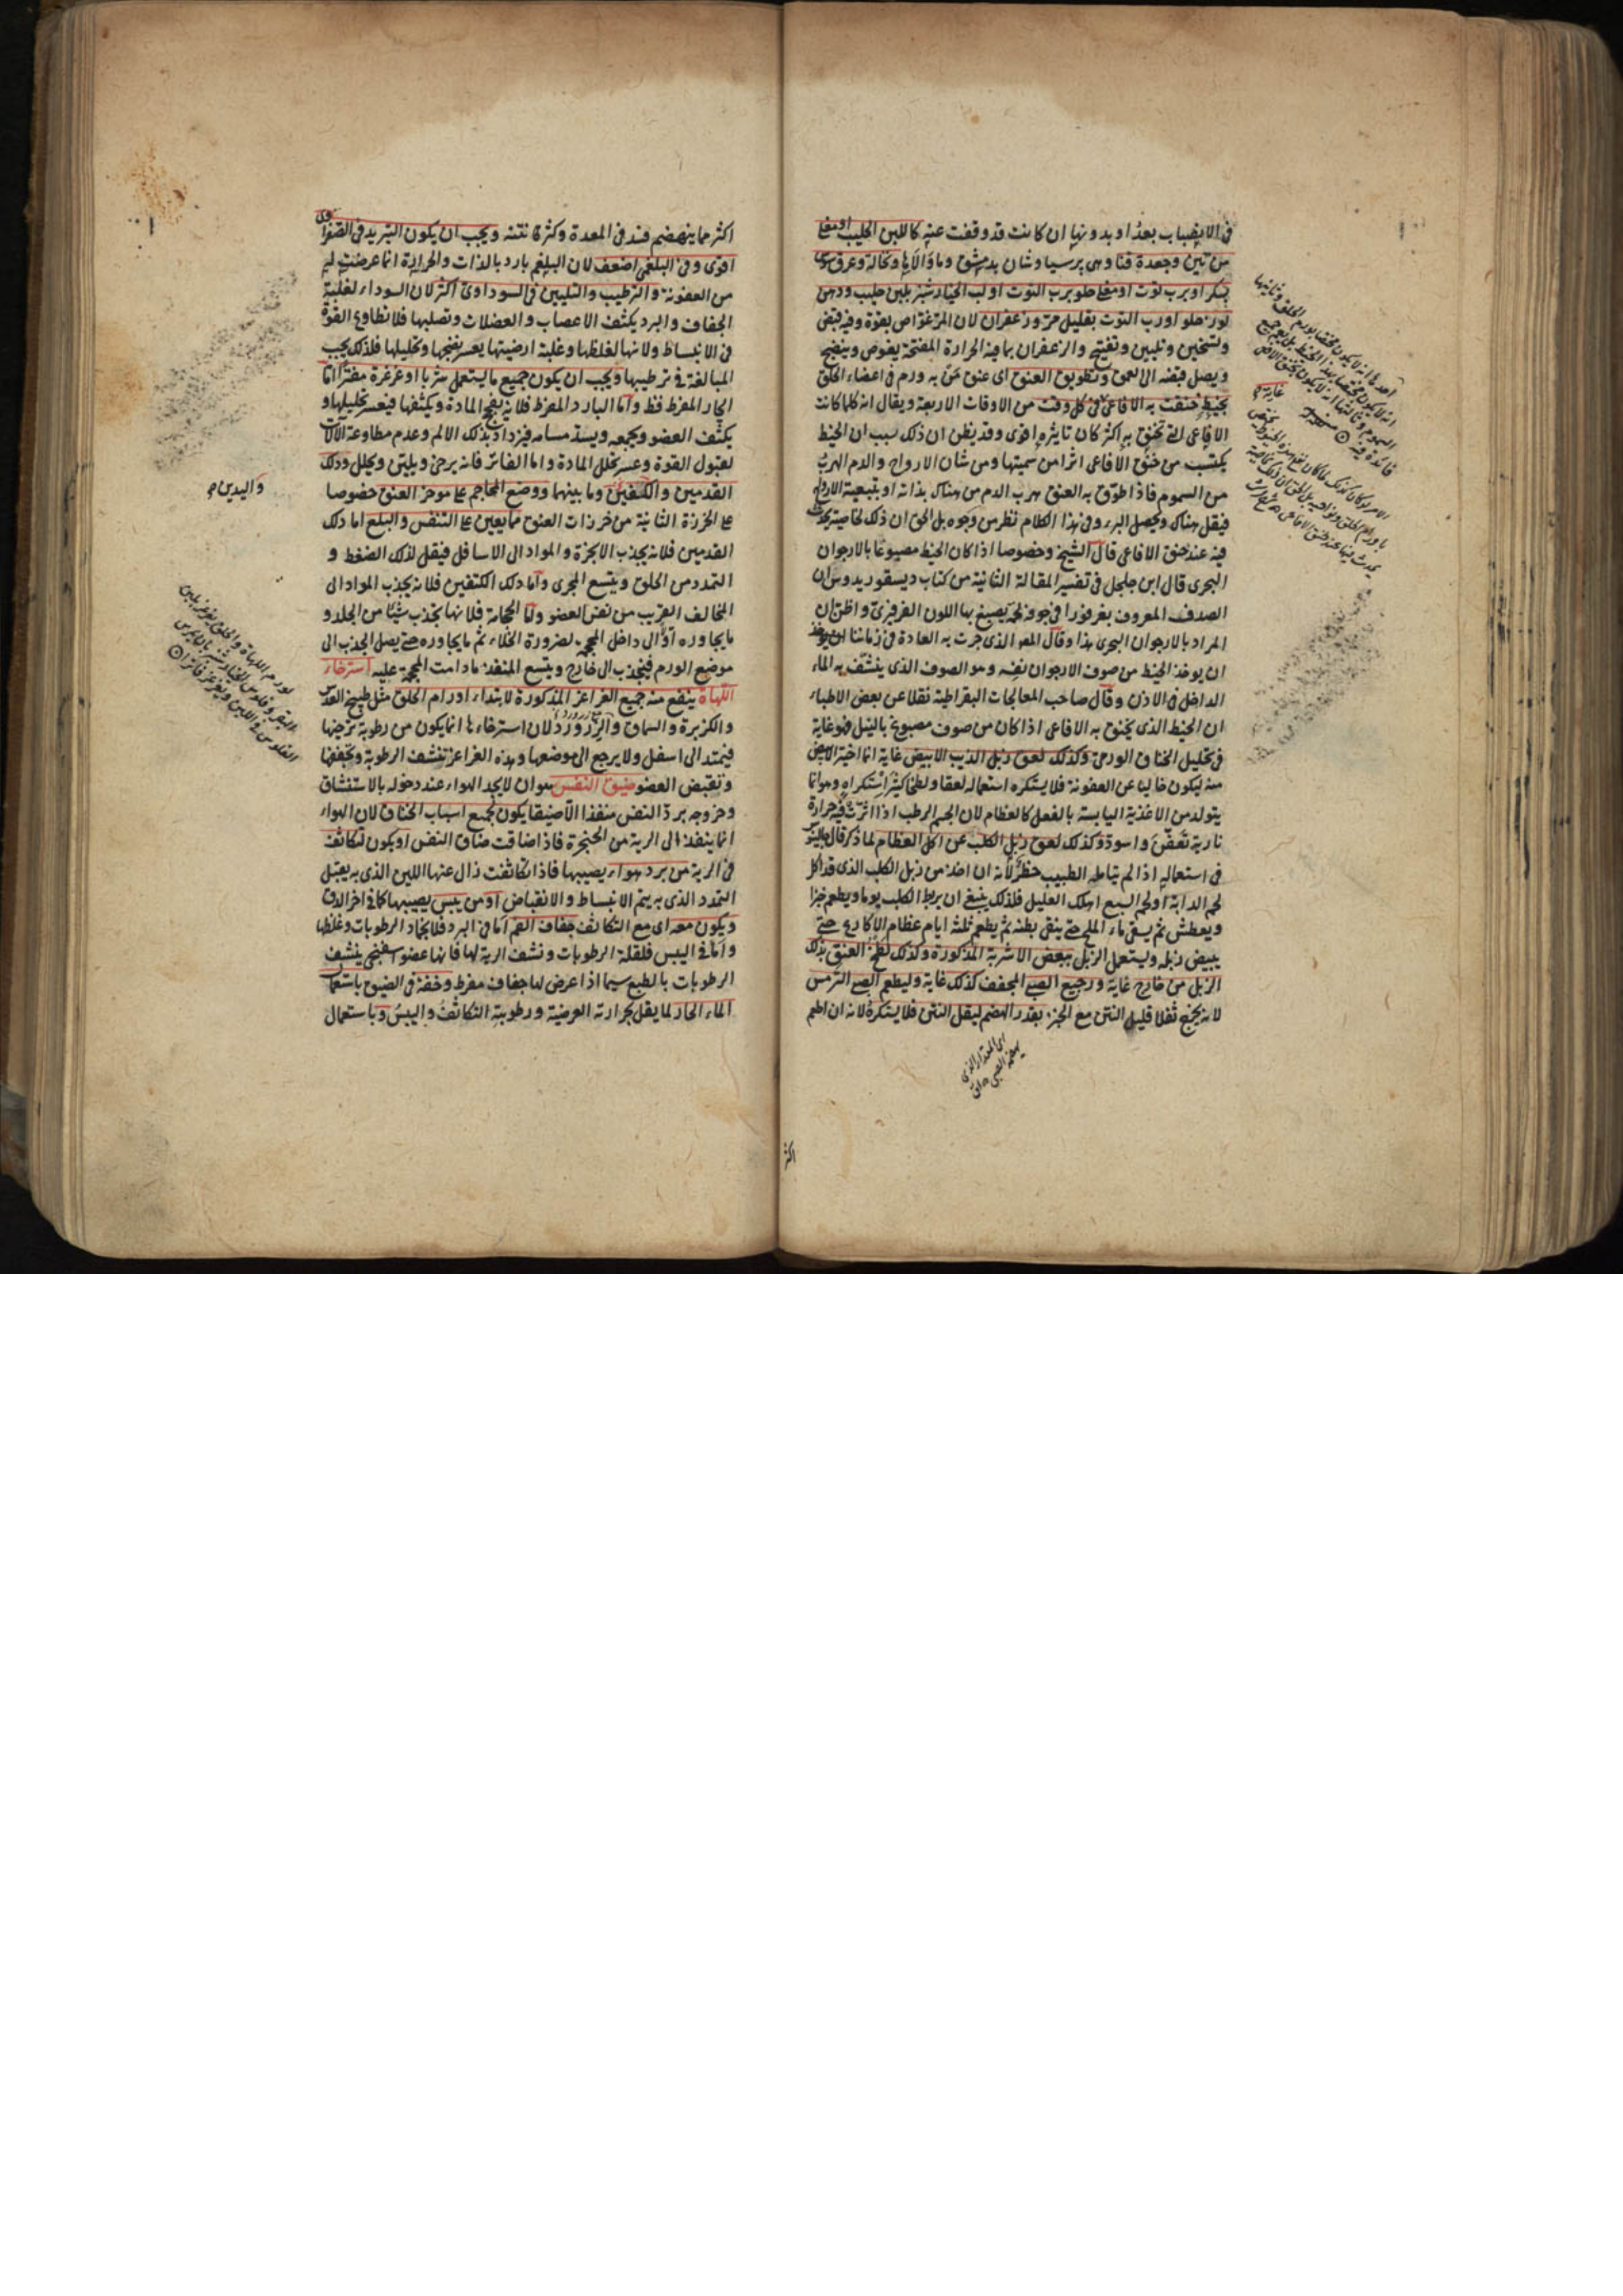 في الانصباب بعد او بدونها ان كانت قد وقفت عنه كاللبن الحليب او نقع
من تين وجعدة قنا وهي برسياوشان بدمشق وماؤ الآيا ونخالة وعرق سوس
بسكر او برب توت او مغلي حلو برب التوت او لب الخيارشنبر بلبن حليب ودهن
لوز حلو او رب التوت بقليل مر وزعفران لان المر غواص بقوة وفيه قبض
وتسخين وتليين وتفتيح والزعفران بما فيه الحرارة المفتحة يغوص وينضج
ويصل قبضه الى العمق وتطويق العنق اى عنق من به ورم في اعضاء الحلق
بخيط خنقت به الافاعي في كل وقت من الاوقات الاربعة ويقال انه كلما كانت
الافاعي التي تخنق به اكثر كان تاثيره اقوى وقد يظن ان ذلك لسبب ان الخيط
يكتسب من خنق الافاعي اثرا من سميتها ومن شان الارواح والدم الهرب
من السموم فاذا طوق به العنق هرب الدم من هناك بذاته او بتبعية الارواح
فيقل هناك ويحصل البرء وفي هذا الكلام نظر من وجوه بل الحق ان ذلك لخاصية تحدث
فيه عند خنق الافاعي قال الشيخ وخصوصا اذا كان الخيط مصبوغا بالارجوان
البحرى قال ابن جلجل في تفسير المقالة الثانية من كتاب ديسقوريدوس ان
الصدف المعروف بفرفورا في جوفه لحمة يصبغ بها اللون الفرفيرى واظن ان
المراد بالارجوان البحرى هذا وقال المص الذى جرت به العادة في زماننا
ان يوخذ الخيط من صوف الارجوان نفسه وهو الصوف الذى ينشف به الماء
الداخل في الاذن وقال صاحب المعالجات البقراطية نقلا عن بعض الاطباء
ان الخيط الذى يخنق به الافاعي اذا كان من صوف مصبوغ بالنيل فهو غاية
في تحليل الخناق الورمي وكذلك لعق زبل الذيب الابيض غاية انما اختير الابيض
منه ليكون خاليا عن العفونة فلا يستكره استعماله لعقا ولطخا كثير استكراه وهو انما
يتولد من الاغذية اليابسة بالفعل كالعظام لان الجسم الرطب اذا اثرت فيه حرارة
نارية تعفن واسود وكذلك لعق زبل الكلب عن اكل العظام لما ذكر قال جالينوس
في استعماله اذا لم يتامله الطبيب خطر لانه ان اخذ من زبل الكلب الذى قد اكل
لحم الدابة او لحم السبع اهلك العليل فلذلك ينبغي ان يربط الكلب يوما ويطعم خبزا
ويعطش ثم يسقى ماء الملح حتى ينقى بطنه ثم يطعم ثلثة ايام عظام الاكارع حتى
يبيض زبله وليستعمل الزبل ببعض الاشربة المذكورة وكذلك لطخ العنق بذلك
الزبل من خارج غاية ورجيع الصبي المجفف كذلك غاية وليطعم الصبي الترمس
لانه يخرج ثفلا قليل النتن مع الخبز بقدر الهضم ليقل النتن فلا يستكره لانه ان اطعم
اى المقدار الذى
يهضمه الصبي
اكثر
اكثر مما ينهضم فسد في المعدة وكثر نتنه ويجب ان يكون التبريد في الصفراوى
اقوى وفي البلغمي اضعف لان البلغم بارد بالذات والحرارة انما عرضت له
من العفونة والترطيب والتليين في السوداوى اكثر لان السوداء لغلبة
الجفاف والبرد يكثف الاعصاب والعضلات وتصلبها فلا تطاوع القوة
في الانبساط ولانها لغلظها وغلبة ارضيتها يعسر نضجها وتحليلها فلذلك يجب
المبالغة في ترطيبها ويجب ان يكون جميع ما يستعمل شربا او غرغرة مفترا اما
الحار المفرط فظ واما البارد المفرط فلانه يفجج المادة ويكثفها فيعسر تحليلها و
يكثف العضو ويجمعه ويسد مسامه فيزداد بذلك الالم وعدم مطاوعة الآلات
لقبول القوة وعسر تحلل المادة واما الفاتر فانه يرخي ويلين ويحلل ودلك
القدمين والكتفين وما بينهما ووضع المحاجم على موخر العنق خصوصا
على الخرزة الثانية من خرزات العنق مما يعين على التنفس والبلع اما دلك
القدمين فلانه يجذب الابخرة والمواد الى الاسافل فيقل لذلك الضغط و
التمدد من الحلق ويتسع المجرى واما دلك الكتفين فلانه يجذب المواد الى
المخالف القريب من نفس العضو واما الحجامة فلانها تجذب شيئا من الجلد و
ما يجاوره اولا الى داخل المحجمة لضرورة الخلاء ثم ما يجاوره حتى يصل الجذب الى
موضع الورم فينجذب الى خارج ويتسع المنفذ ما دامت المحجمة عليه استرخاء
اللهاة ينفع منه جميع الغراغر المذكورة لابتداء اورام الحلق مثل طبيخ العدس
والكزبرة والسماق والبزرورد لان استرخاءها انما يكون من رطوبة ترخيها
فيمتد الى اسفل ولا يرجع الى موضعها وهذه الغراغر تنشف الرطوبة وتجففها
وتقبض العضو ضيق النفس هو ان لا يجد الهواء عند دخوله بالاستنشاق
وخروجه برد النفس منفذا الا ضيقا يكون لجميع اسباب الخناق لان الهواء
انما ينفذ الى الرية من الحنجرة فاذا ضاقت ضاق النفس او يكون لتكاثف
في الرية من برد هواء يصيبها فاذا تكاثفت زال عنها اللين الذى به يقبل
التمدد الذى به يتم الانبساط والانقباض او من يبس يصيبها كما في اخر الدق
ويكون معه اى مع التكاثف جفاف الفم اما في البرد فلانجماد الرطوبات وغلظها
واما في اليبس فلقلة الرطوبات ونشف الرية لها فانها عضو اسفنجي ينشف
الرطوبات بالطبع سيما اذا عرض لها جفاف مفرط وخفة في الضيق باستعمال
الماء الحار لما يقل بحرارته العرضية ورطوبته التكاثف واليبس وباستعمال
واليدين
لورم اللهاة والحلق يؤخذ لبن
البقر وفلوس الخيارشنبر بان يمرس
الفلوس في اللبن ويغرغر فاترا